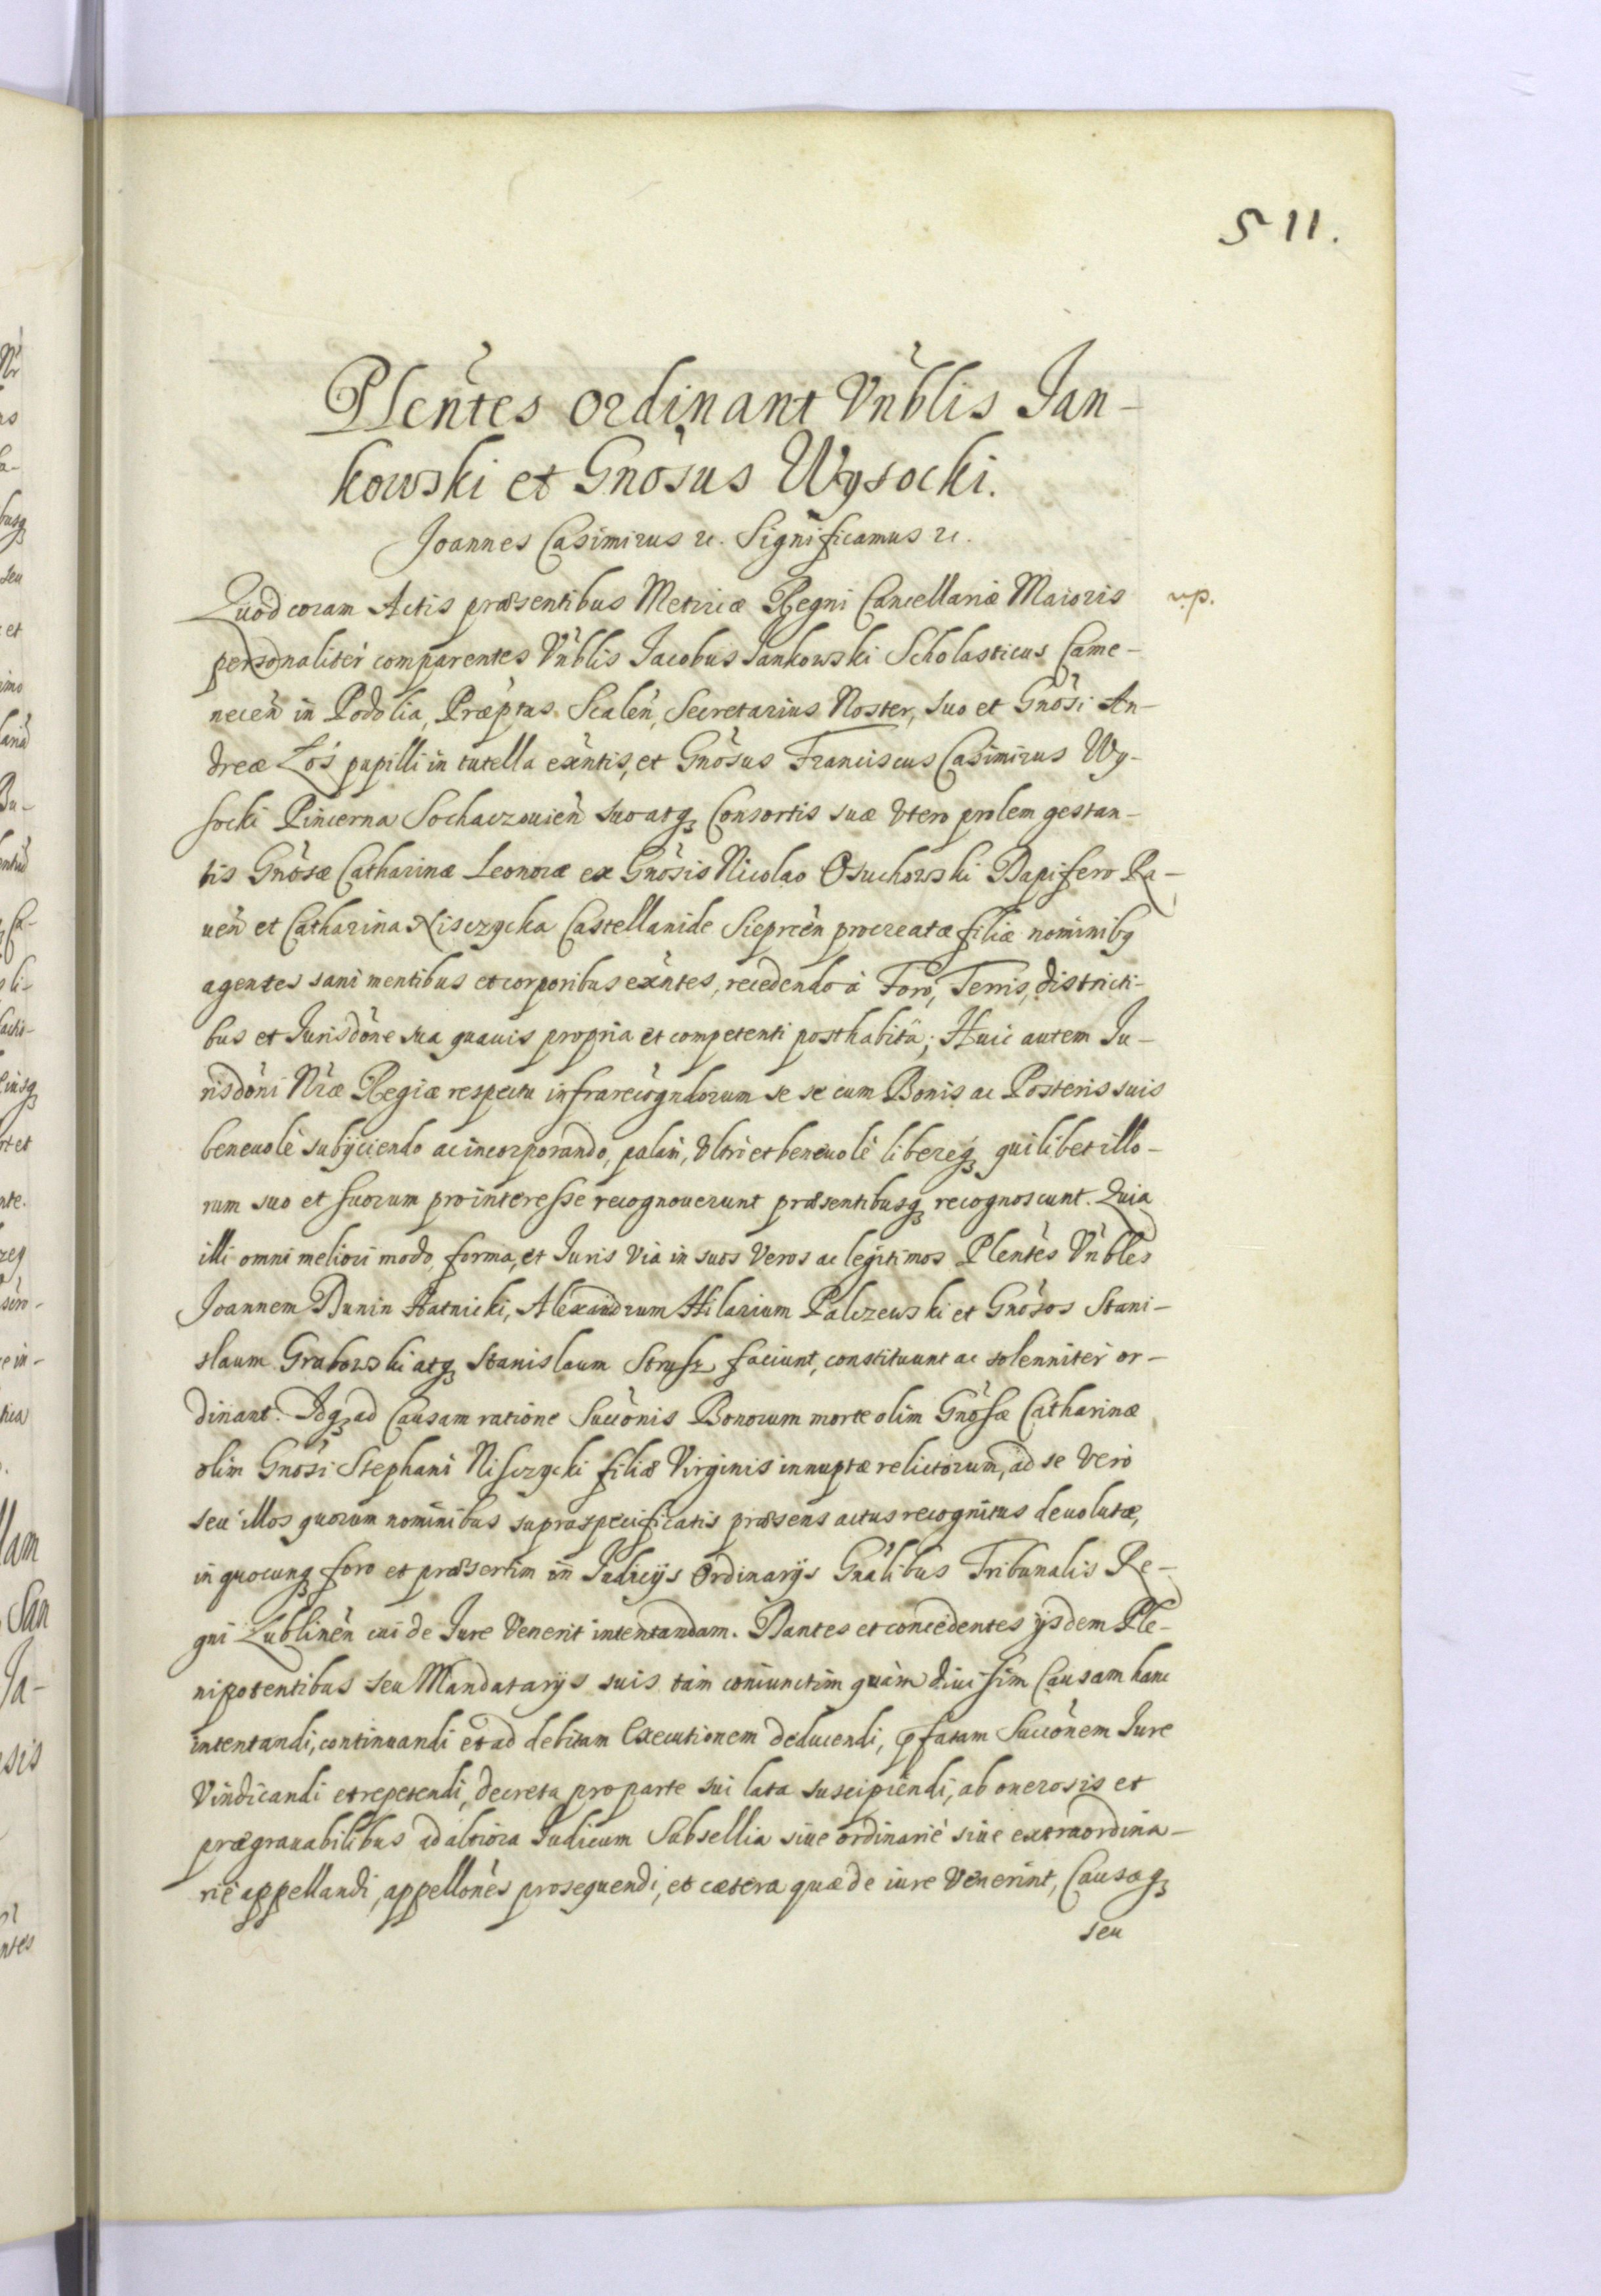 511.
Plentes ordinant Vnblis Jan-
kowski et Gnosus Wysocki.
Joannes Casimirus etc. Significamus etc.
Quod coram Actis præsentibus Metricæ Regni Cancellariæ Maioris
personaliter comparentes Vnblis Jacobus Jankowski Scholasticus Came-
necen in Podolia, Præptus Scalen, Secretarius Noster, suo et Gnosi An-
dreæ Łos pupilli in tutella exntis, et Gnosus Franciscus Casimirus Wy-
socki Pincerna Sochaczouien suo atq Consortis suæ Vtero prolem gestan-
tis Gnosæ Catharinæ Leonoræ ex Gnosis Nicolao Osuchowski Dapifero Ra-
uen et Catharina Nisczycka Castellanide Sieprcen procreatæ filiæ nominibq
agentes sani mentibus et corporibus exntes, recedendo à Foro, Terris, districti-
bus et Jurisdone sua quauis propria et competenti posthabita; Huic autem Ju-
risdoni Nræ Regiæ respectu infrarecogndorum se se cum Bonis ac Posteris suis
beneuolè subijciendo ac incorporando, palam, Vltrò et beneuolè libereq quilibet illo-
rum suo et suorum pro interesse recognouerunt præsentibusq recognoscunt. Quia
illi omni meliori modo, forma, et Juris via in suos Veros ac legitimos Plentes Vnbles
Joannem Dunin Ratnicki, Alexandrum Hilarium Palczewski et Gnosos Stani-
slaum Grabowski atq Stanislaum Strusz faciunt, constituunt ac solenniter or-
dinant. Idq ad Causam ratione Succonis Bonorum morte olim Gnosæ Catharinæ
olim Gnosi Stephani Nisczycki filiæ Virginis innuptæ relictorum, ad se vero
seu illos quorum nominibus supraspecificatis præsens actus recognitus deuolutæ,
in quocunq foro et præsertim in Judicijs Ordinarijs Gnalibus Tribunalis Re-
gni Lublinen cui de Jure Venerit intentandam. Dantes et concedentes ijsdem Ple-
nipotentibus seu Mandatarijs suis tàm coniunctim quàm diuisim Causam hanc
intentandi, continuandi et ad debitam Executionem deducendi, pfatam Succonem Jure
Vindicandi et repetendi, decreta pro parte sui lata suscipiendi, ab onerosis et
prægrauabilibus ad altiora Judicum Subsellia siue ordinariè siue extraordina-
riè appellandi, appellones prosequendi, et cætera quæ de iure Venerint, Causaq
seu